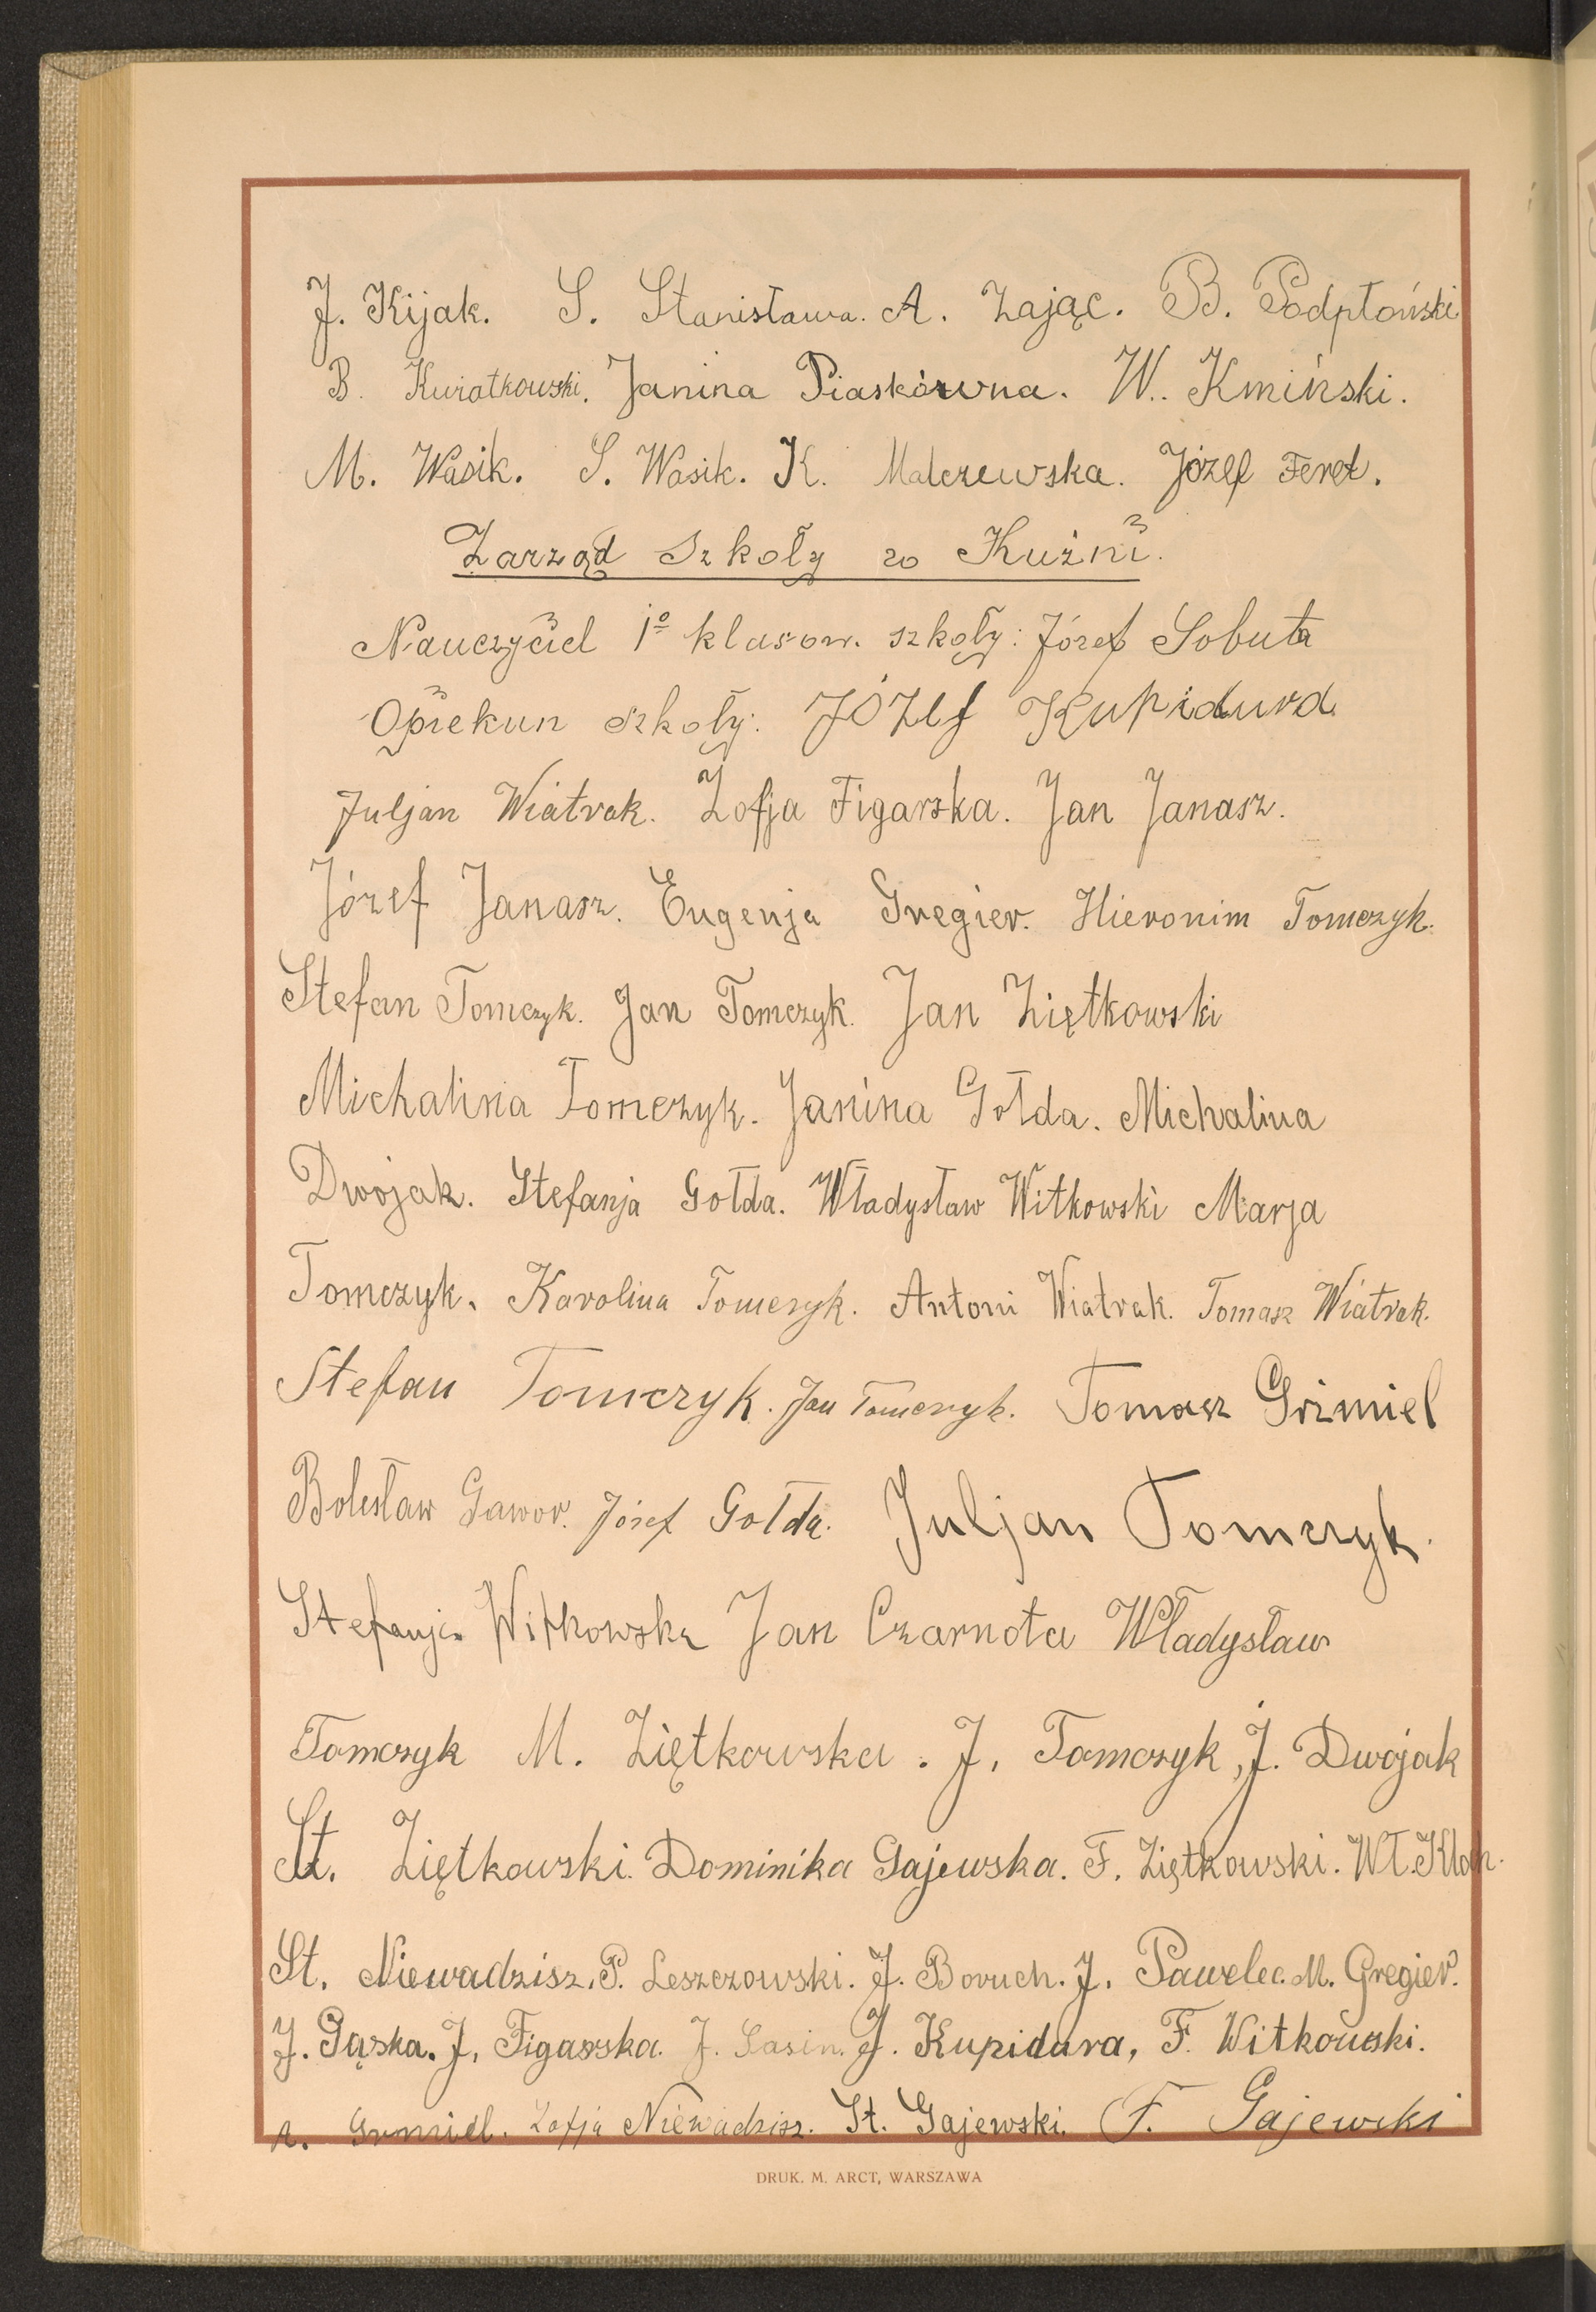 J. Kijak. S. Stanisława. A. Zając. B. Podptoński
B. Kwiatkowski. Janina Piaskówna. W. Kmiński.
M. Wasik. S. Wasik. K. Malczewska. Józef Feret.
Zarząd Szkoły w Kuźni.
Nauczyciel 1º klasow. szkoły: Józef Sobuta
Opiekun szkoły: Józef Kupidura
Juljan Wiatrak. Zofja Figarska. Jan Janasz.
Józef Janasz. Eugenja Gregier. Hieronim Tomczyk.
Stefan Tomczyk. Jan Tomczyk. Jan Ziętkowski
Michalina Tomczyk. Janina Gołda. Michalina
Dwojak. Stefanja Gołda. Władysław Witkowski Marja
Tomczyk. Karolina Tomczyk. Antoni Wiatrak. Tomasz Wiatrak.
Stefan Tomczyk. Jan Tomczyk. Tomasz Grzmiel
Bolesław Gawor. Józef Gołda. Juljan Tomczyk.
Stefanja Witkowska Jan Czarnota Władysław
Tomczyk M. Ziętkowska. J. Tomczyk, J. Dwojak
St. Ziętkowski. Dominika Gajewska. F. Ziętkowski. Wł.
St. Niewadzisz. P. Leszczowski. J. Boruch. J. Pawelec. M. Gregier.
J. Gąska. J. Figarska. J. Sasin. J. Kupidura, F. Witkowski.
A. Grzmiel. Zofja Niewadzisz. St. Gajewski. F. Gajewski
DRUK. M. ARCT, WARSZAWA